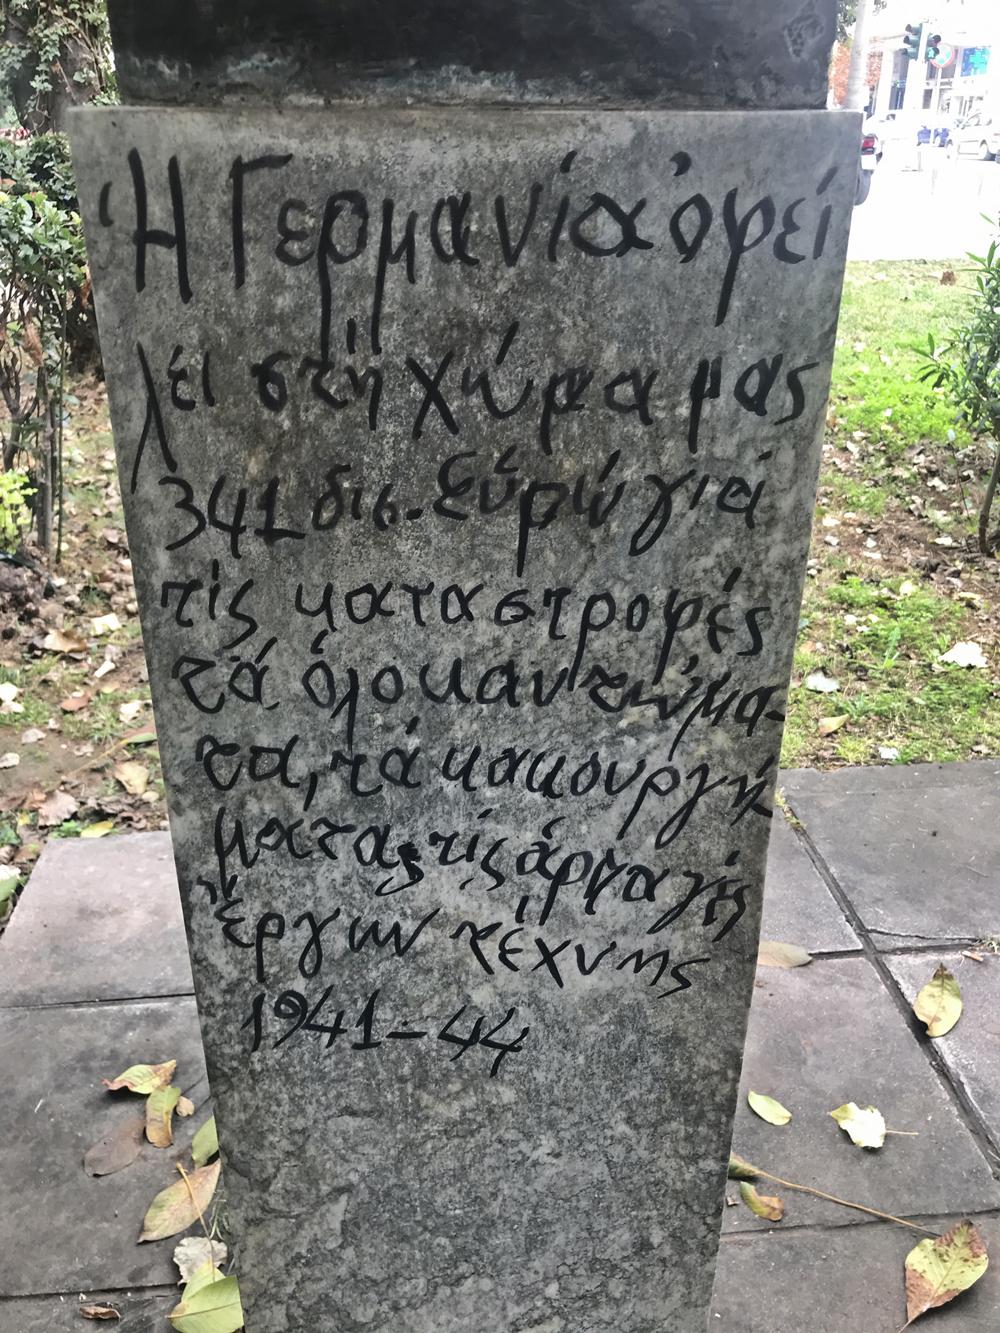 Ἡ Γερμανία ὀφεί
λει στή χώρα μας
341 δις. Εὐρώ γιά
τίς καταστροφές
τά ὁλοκαυτώμα-
τα, τά κακουργή
ματα, τίς ἁρπαγές
ἔργων τέχνης
1941-44